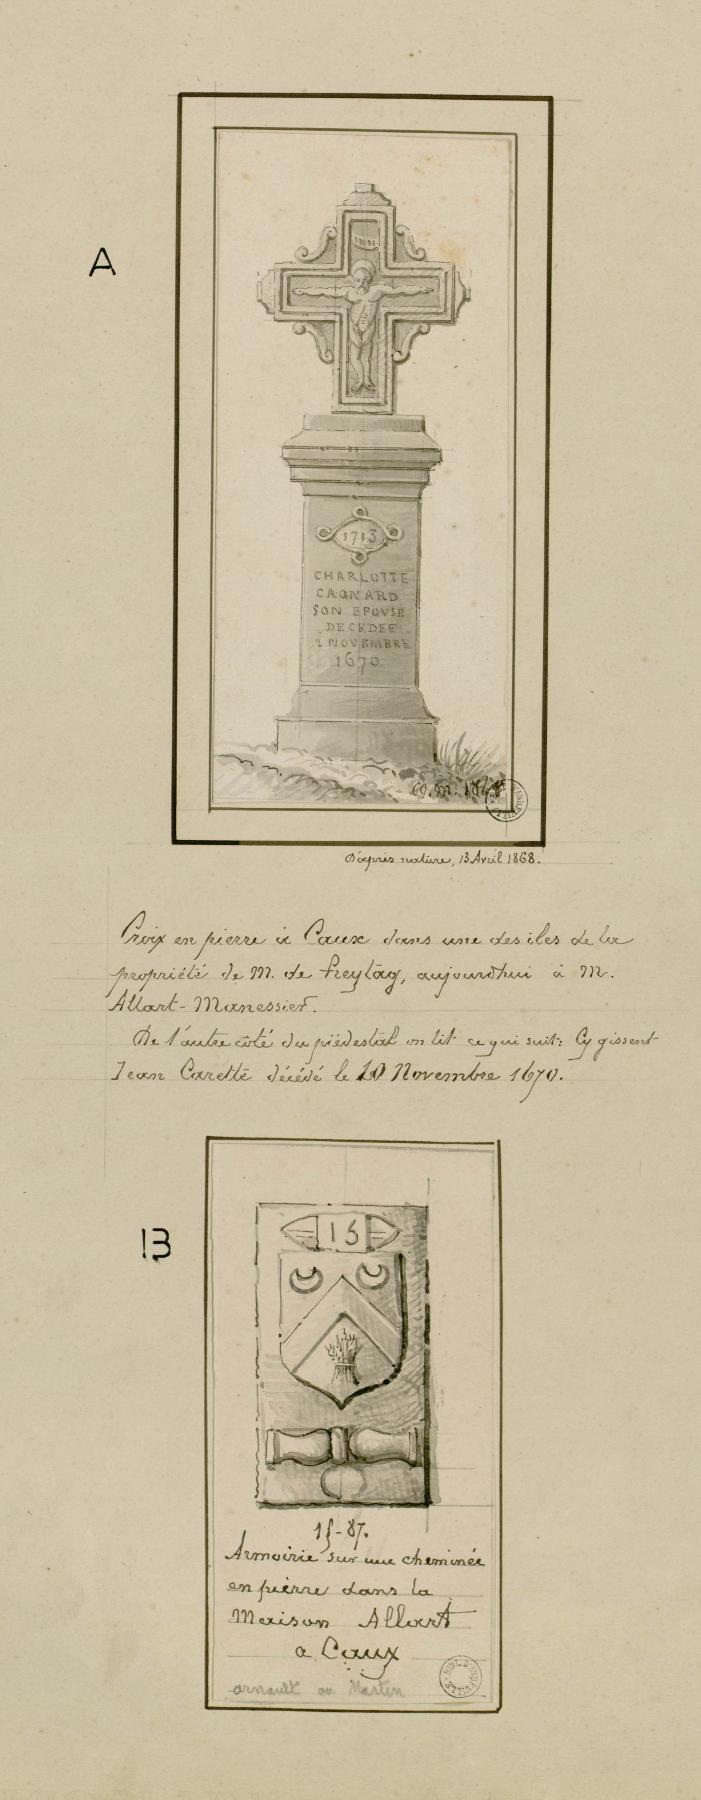 A
INRI
1713
CHARLOTTE
CAGNARD
SON EPOVSE
DECEDEE
2 NOVEMBRE
1670.
D'après nature, 13 Avril 1868.
Croix en pierre à Caux dans une des iles de la
propriété de M. de Freytag, aujourdhui à M.
Allart-Manessier.
De l'autre côté du piédestal on lit ce qui suit: Cy gissent
Jean Carette décédé le 10 Novembre 1670.
B
15
15-87.
Armoirie sur une cheminée
en pierre dans la
Maison Allart
a Caux
arnault ou Martin